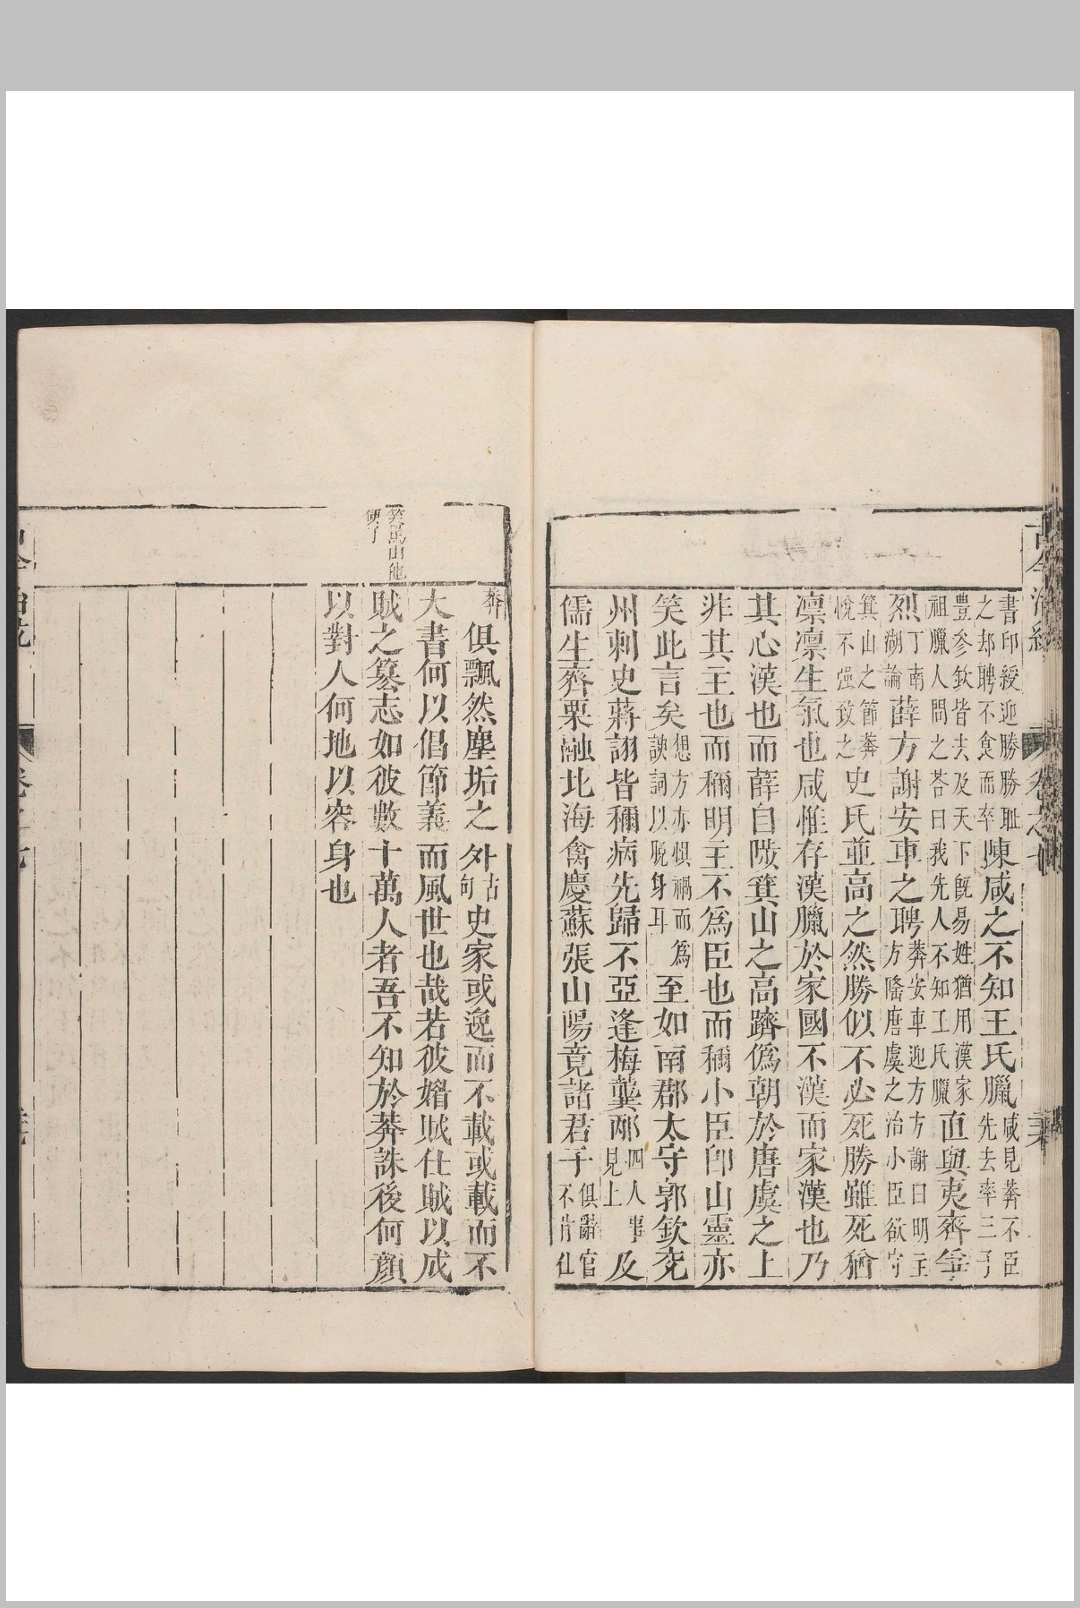 書印綬迎勝勝耻
之刼聘不食而卒
陳咸之不知王氏臘
咸見莽不臣
先去率三子
豐參欽皆夫及天下旣易姓猶用漢家
祖臘人問之荅曰我先人不知王氏臘
直與夷齊争
烈
丁南
湖論
薛方謝安車之聘
莽安車迎方方謝曰明主
方隆唐虞之治小臣欲守
箕山之節莽
悅不强致之
史氏並高之然勝似不必死勝雖死猶
凛凛生氣也咸惟存漢臘於家國不漢而家漢也乃
其心漢也而薛自陂箕山之高躋偽朝於唐虞之上
非其主也而稱明主不為臣也而稱小臣卽山靈亦
笑此言矣
想方亦惧禍而為
諛詞以脫身耳
至如南郡太守郭欽兖
州刺史蔣詡皆稱病先歸不亞逢梅龔邴
四人事
見上
及
儒生齊栗融北海禽慶蘇張山陽竟諸君子
俱辭官
不肯仕
莽
俱飄然塵垢之外
古
句
史家或逸而不載或載而不
大書何以倡節義而風世也哉若彼媚賊仕賊以成
賊之篡志如彼數十萬人者吾不知於莽誅後何顏
以對人何地以容身也